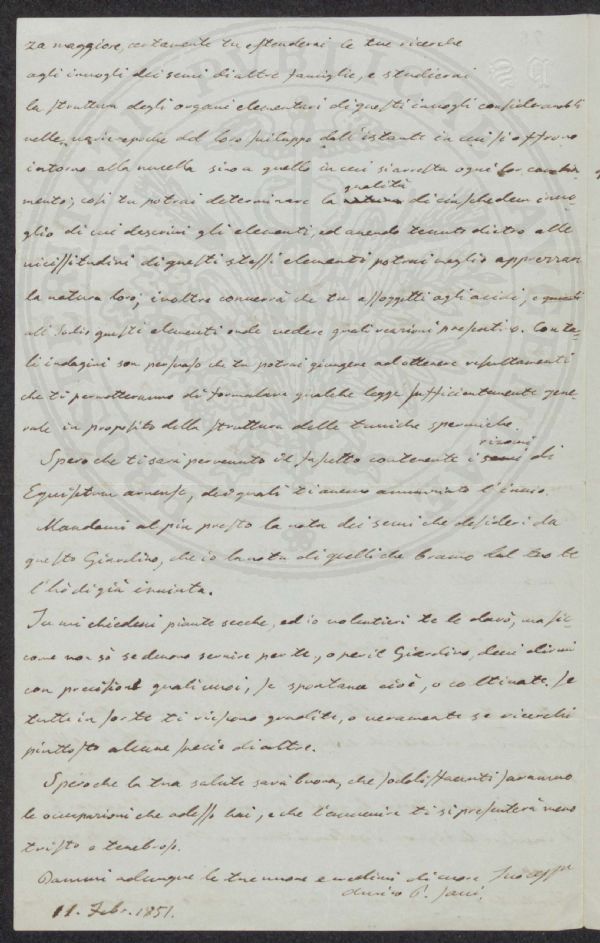 za maggiore, certamente tu estenderai le tue ricerche
agli invogli dei semi di altre famiglie, e studierai
la struttura degli organi elementari di questi invogli considerandoli
nelle varie epoche del loro sviluppo dall'istante in cui si offrono
intorno alla nucella sino a quello in cui si arresta ogni lor cambia-
mento; così tu potrai determinare la qualità di ciaschedun invo-
glio di cui descrivi gli elementi, ed avendo tenuto dietro alle
vicissitudini di questi stessi elementi potrai meglio apprezzare
la natura loro; inoltre converrà che tu assoggetti agli acidi, e quindi
all'Iodio questi elementi onde vedere quali reazioni presentino. Con ta-
li indagini son persuaso che tu potrai giungere ad ottenere resultamenti
che ti permetteranno di formulare qualche legge sufficientemente gene-
rale in proposito della struttura delle tuniche spermiche.
Spero che ti sarà pervenuto il sacchetto contenente i rizomi di
Equisetum arvense, dei quali ti avevo annunziato l'invio.
Mandami al più presto la nota dei semi che desideri da
questo Giardino, che io la nota di quelli che bramo dal tuo te
l'hò di già inviata.
Tu mi chiedevi piante secche, ed io volentieri te le darò, ma sic-
come non sò se devono servire per te, o per il Giardino, devi dirmi
con precisione quali vuoi, se spontanee cioè, o coltivate, se
tutte in sorte ti riescono gradite, o veramente se ricerchi
piuttosto alcune specie di altre.
Spero che la tua salute sarà buona, che sodisfacenti saranno
le occupazioni che adesso hai, e che l'avvenire ti si presenterà meno
tristo e tenebroso.
Dammi adunque le tue nuove e credimi di cuore Tuo aff.
amico P. Savi.
11. Febr. 1851.